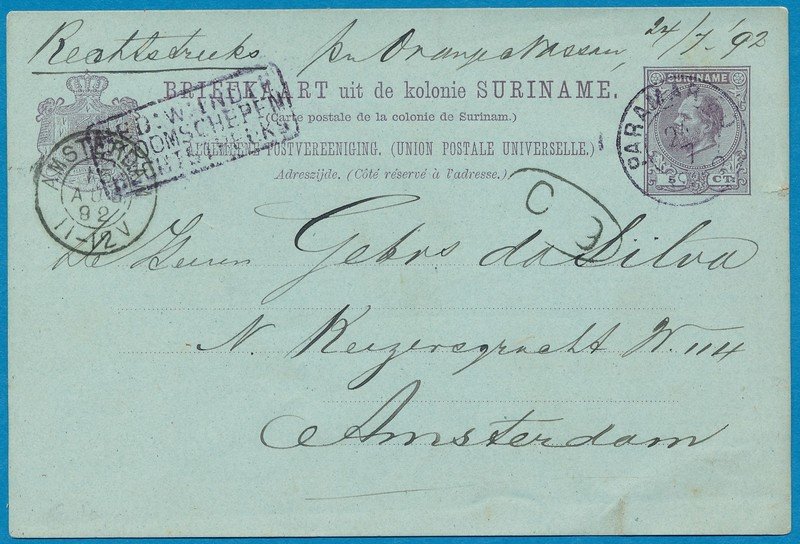 Rechtstreeks per Oranje Nassau, 24/7-'92
BRIEFKAART uit de kolonie SURINAME.
(Carte postale de la colonie de Surinam.)
ALGEMEENE POSTVEREENIGING. (UNION POSTALE UNIVERSELLE.)
Adreszijde. (Côté réservé à l'adresse.)
SURINAME
5 CT.
PARAMAR
STOOMSCHEPEN
RECHTSTREEKS
AMSTERDAM
AUG
92
11-12V
C E
De Heeren Gebrs da Silva
N. Keizersgracht W. 114
Amsterdam